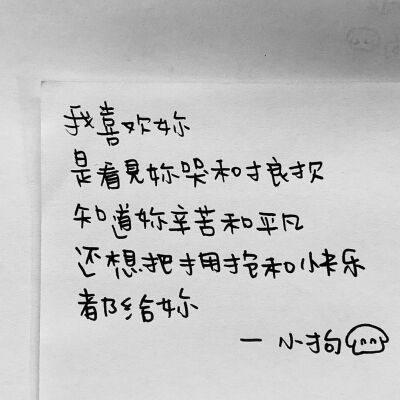 我喜欢妳
是看見妳哭和狼狈
知道妳辛苦和平凡
还想把拥抱和快乐
都给妳
— 小狗